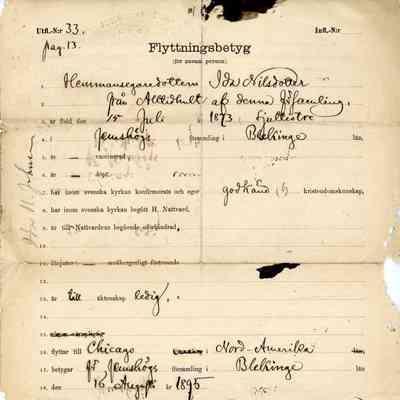 Utfl.-N:r 33. Infl.-N:r
pag. 13.
Flyttningsbetyg
(för ensam person)
1. Hemmansegaredottern Ida Nilsdotter
2. från Allidhult af denna församling,
3. är född den 15 Juli år 1873 i
4. i Jemshögs församling i Blekinge län,
5. är — vaccinerad
6. är — döpt
7. har inom svenska kyrkan konfirmerats och eger godkänd kristendomskunskap,
8. har inom svenska kyrkan begått H. Nattvard,
9. är till Nattvardens begående oförhindrad,
åtnjuter — medborgerligt förtroende
är till äktenskap ledig,
14. flyttar till Chicago i Nord-Amerika län,
15. betygar för Jemshögs församling i Blekinge län
16. den 16 Augusti år 1895